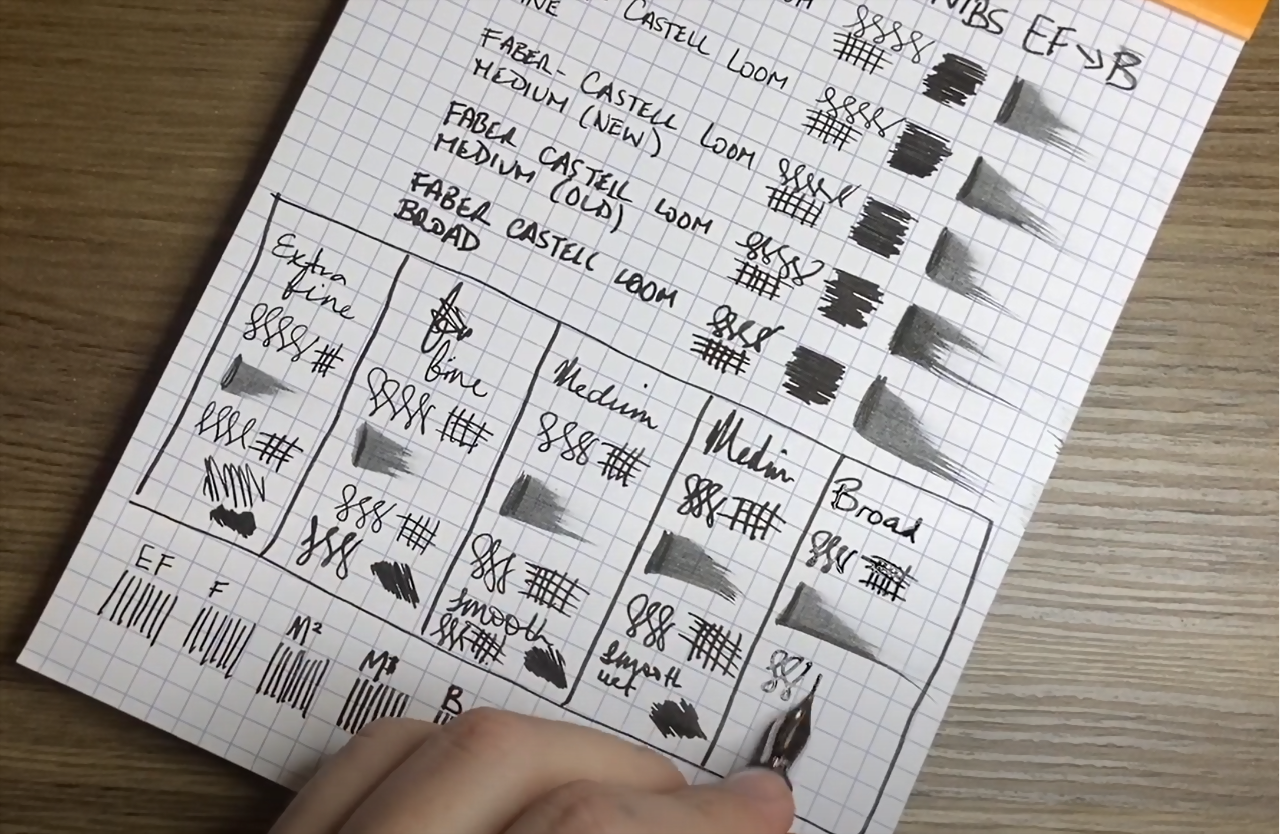 NIBS EF→B
LOOM
CASTELL LOOM
FABER-CASTELL LOOM
MEDIUM (NEW)
FABER CASTELL LOOM
MEDIUM (OLD)
FABER CASTELL LOOM
BROAD
Extra
fine
fine
Medium
smooth
Medium
smooth
wet
Broad
EF
F
M²
B